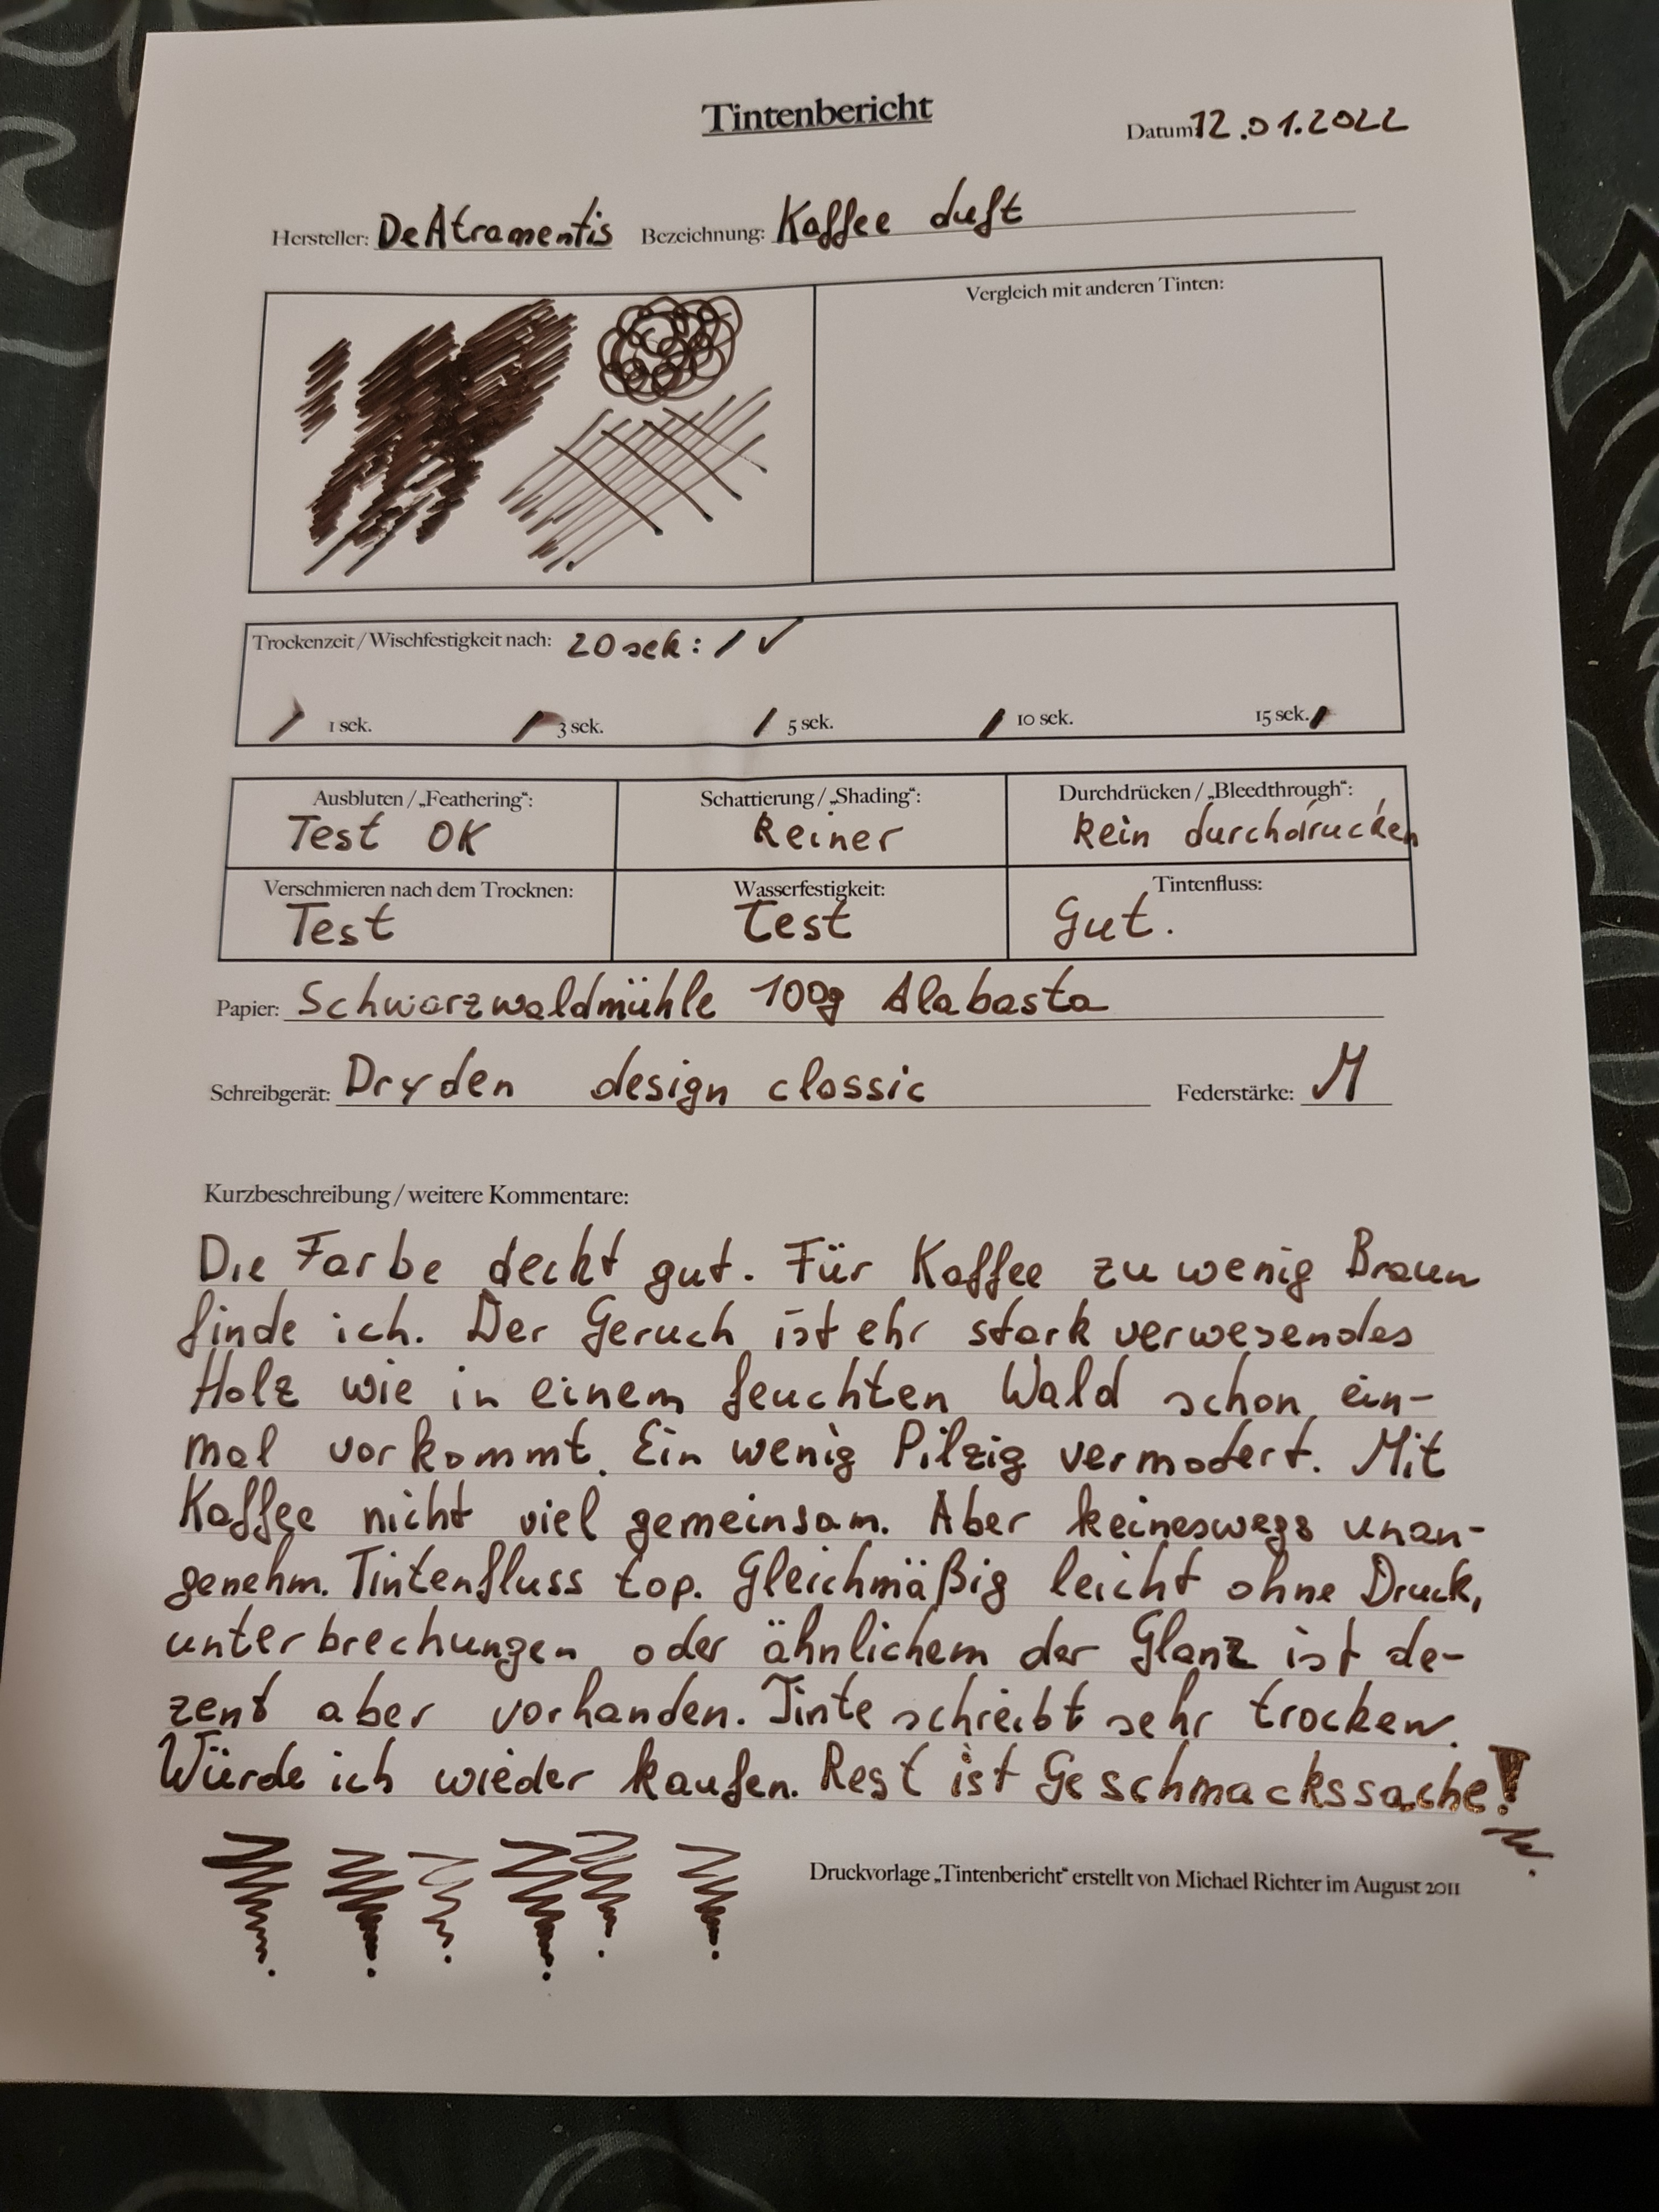 Tintenbericht
Datum: 12.01.2022
Hersteller: DeAtramentis Bezeichnung: Kaffee duft
Vergleich mit anderen Tinten:
Trockenzeit / Wischfestigkeit nach: 20 sek: / ✓
1 sek. 3 sek. 5 sek. 10 sek. 15 sek.
Ausbluten / „Feathering“: Schattierung / „Shading“: Durchdrücken / „Bleedthrough“:
Test OK Keiner Kein durchdrücken
Verschmieren nach dem Trocknen: Wasserfestigkeit: Tintenfluss:
Test Test Gut.
Papier: Schwarzwaldmühle 100g Alabasta
Schreibgerät: Dryden design classic Federstärke: M
Kurzbeschreibung / weitere Kommentare:
Die Farbe deckt gut. Für Kaffee zu wenig Braun
finde ich. Der Geruch ist ehr stark verwesendes
Holz wie in einem feuchten Wald schon ein-
mal vorkommt. Ein wenig Pilzig vermodert. Mit
Kaffee nicht viel gemeinsam. Aber keineswegs unan-
genehm. Tintenfluss top. Gleichmäßig leicht ohne Druck,
unterbrechungen oder ähnlichem der Glanz ist de-
zent aber vorhanden. Tinte schreibt sehr trocken.
Würde ich wieder kaufen. Rest ist Geschmackssache!
Druckvorlage „Tintenbericht“ erstellt von Michael Richter im August 2011